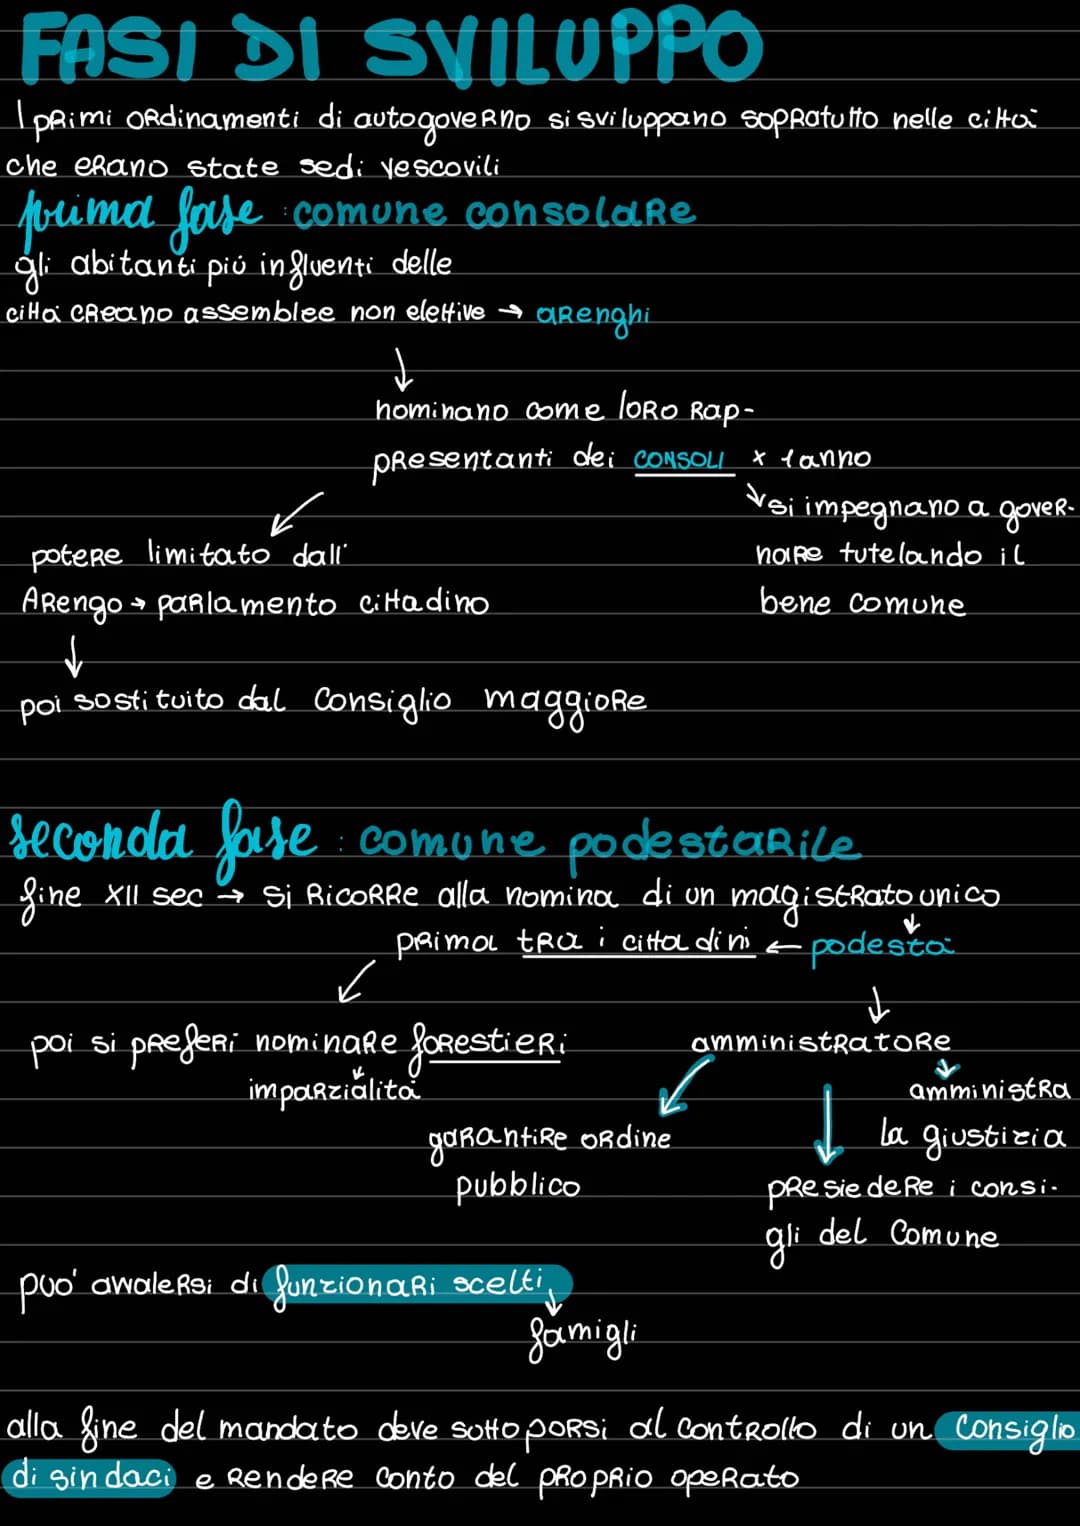 FASI DI SVILUPPO
I primi ordinamenti di autogoverno si sviluppano sopratutto nelle città
che erano state sedi vescovili
prima fase : comune consolare
gli abitanti più influenti delle
città creano assemblee non elettive → arenghi
nominano come loro rap-
presentanti dei CONSOLI x 1 anno
si impegnano a gover-
nare tutelando il
bene comune
potere limitato dall'
Arengo → parlamento cittadino
poi sostituito dal Consiglio maggiore
seconda fase : comune podestarile
fine XII sec → si ricorre alla nomina di un magistrato unico
prima tra i cittadini ← podestà
poi si preferì nominare forestieri
imparzialità
amministratore
amministra
la giustizia
garantire ordine
pubblico
presiedere i consi-
gli del Comune
può avvalersi di funzionari scelti
famigli
alla fine del mandato deve sottoporsi al controllo di un Consiglio
di sindaci e rendere conto del proprio operato